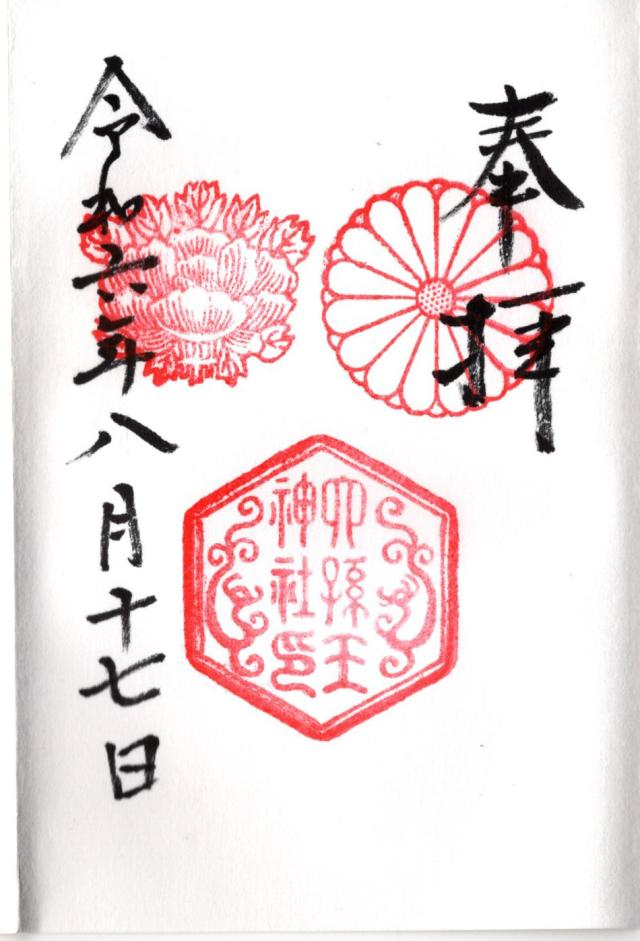 奉拝
六孫王
神社印
令和六年八月十七日